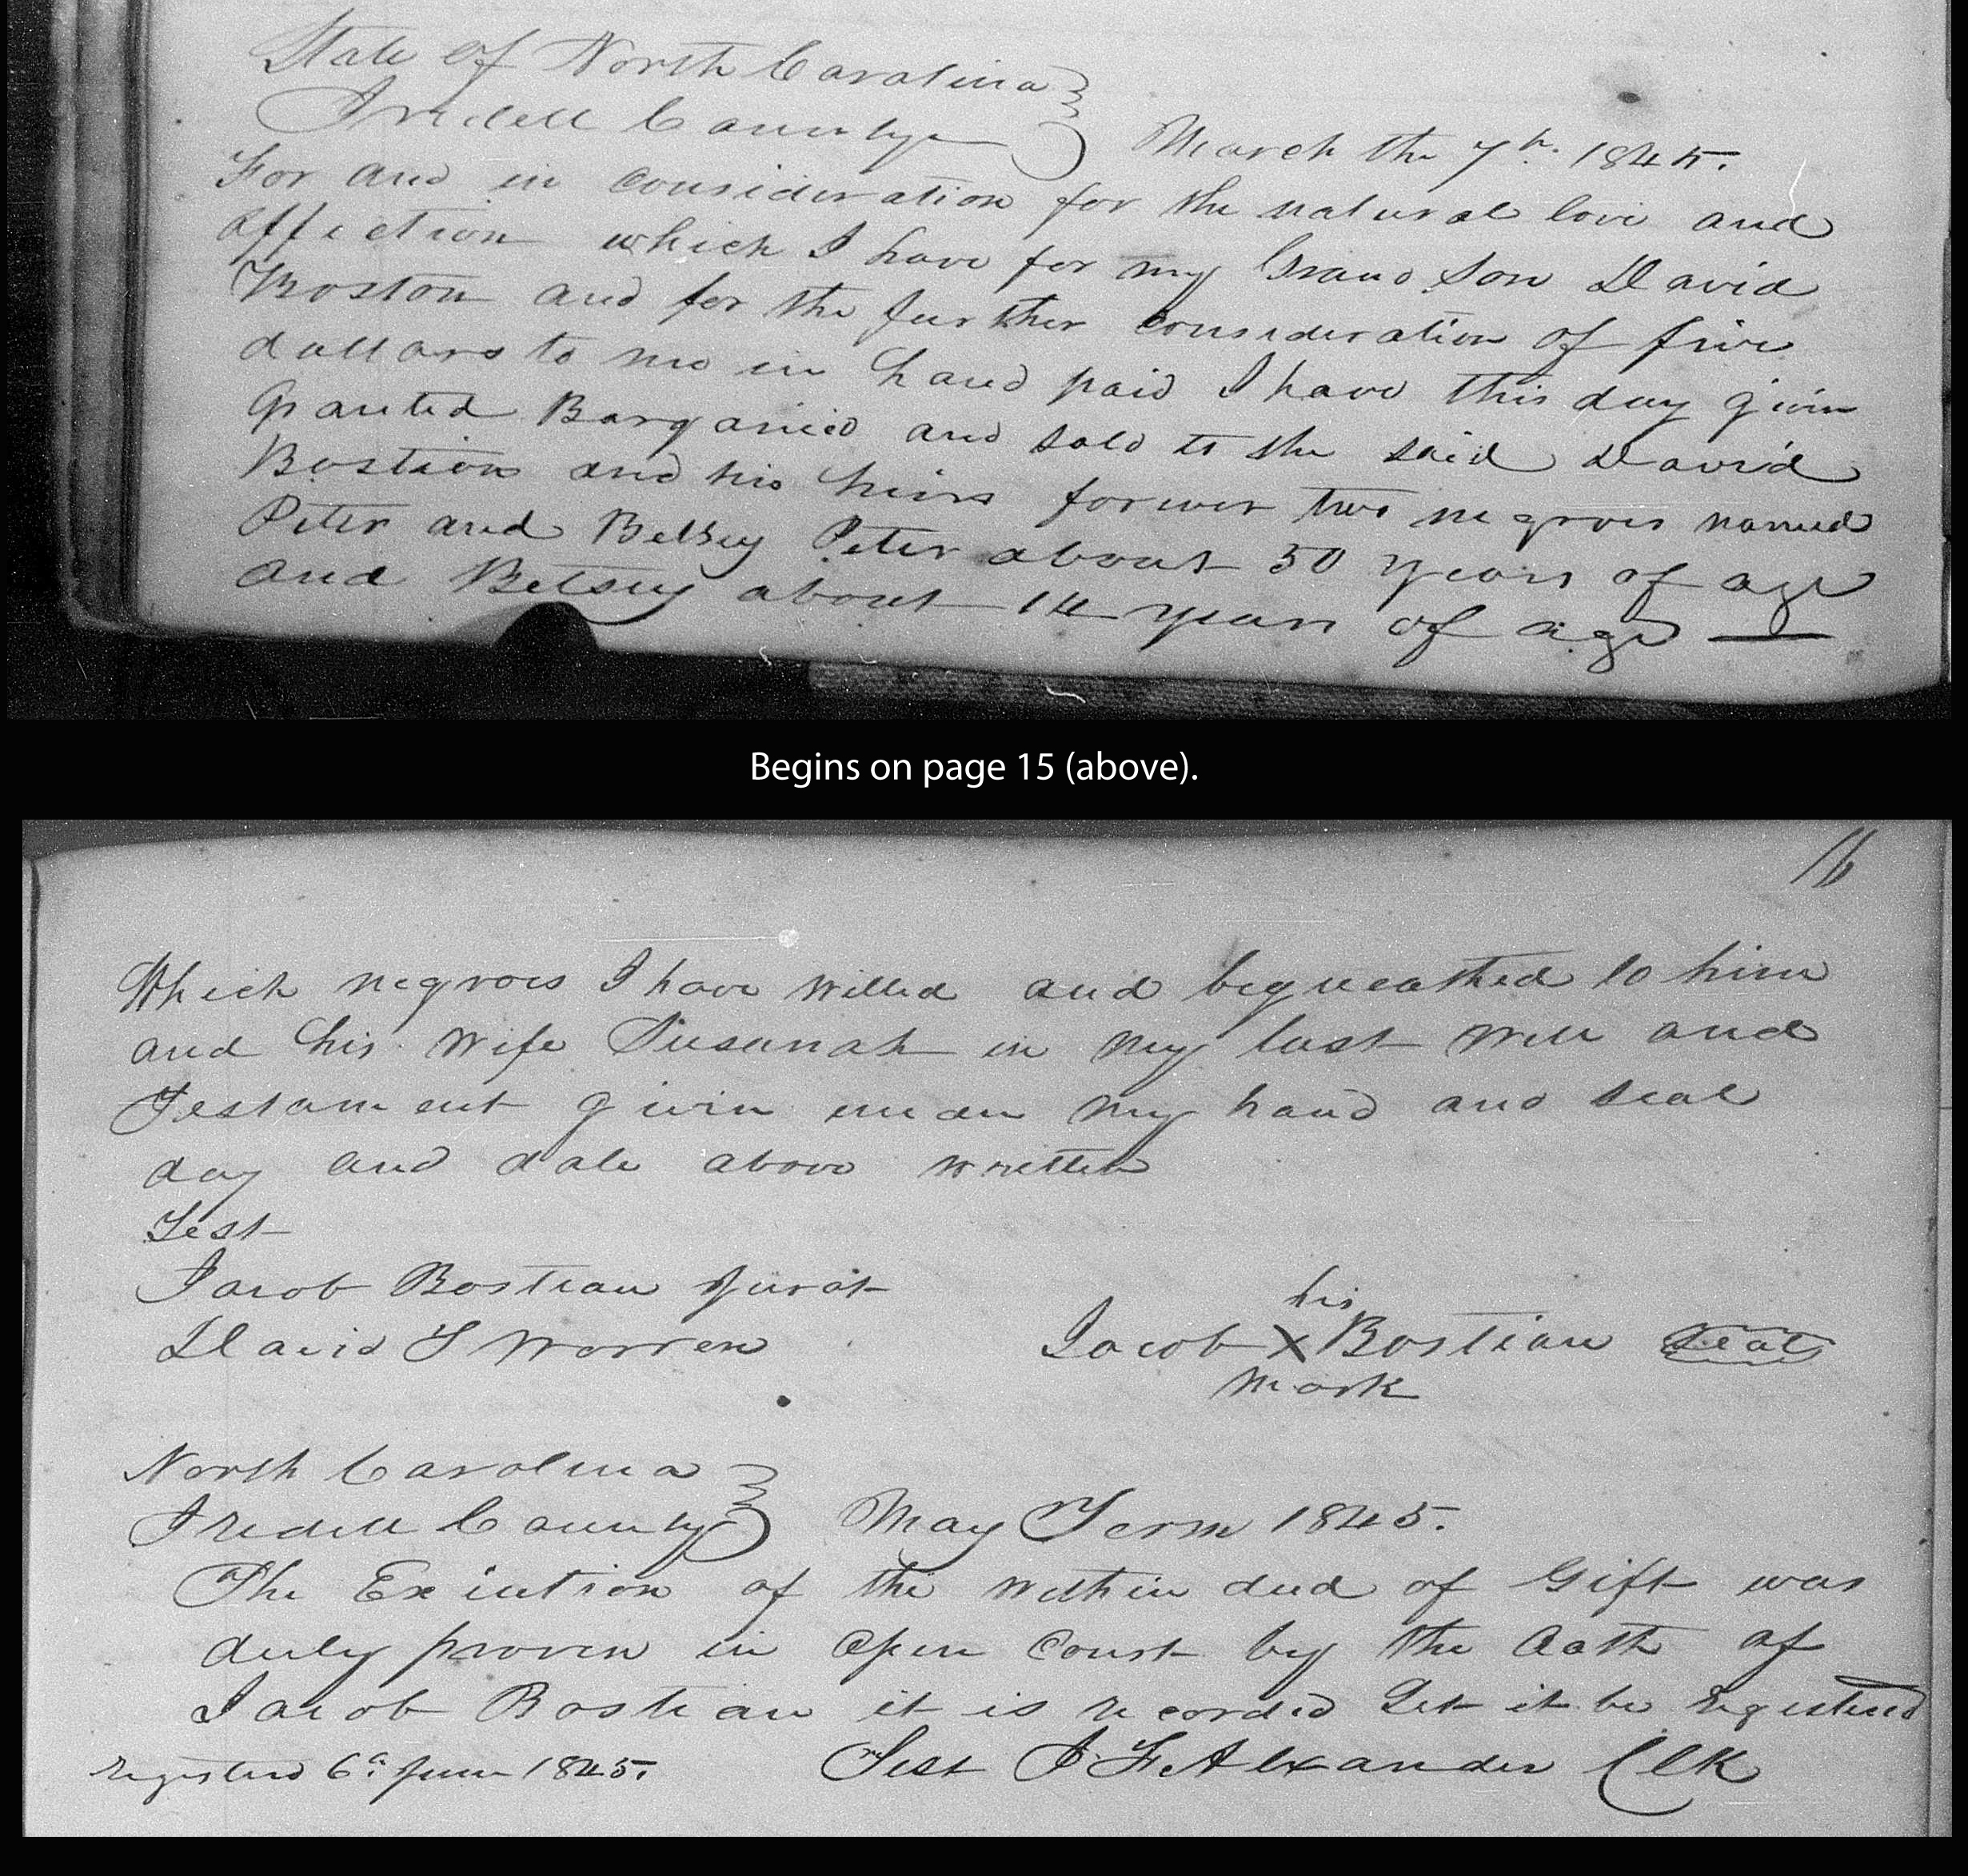 State of North Carolina
Iredell County March the 7th. 1845.
For and in consideration for the natural love and
affection which I have for my Grand Son David
Boston and for the further consideration of five
dollars to me in hand paid I have this day given
Granted Barganied and sold to the said David
Bostion and his heirs forever two negroes named
Peter and Betsey Peter about 50 years of age
and Betsey about 14 years of age —
Begins on page 15 (above).
16
Which negroes I have willed and bequeathed to him
and his wife Susanah in my last will and
Testament given under my hand and seal
day and date above written
Test
Jacob Bostian Jurat
David S Warren
his
Jacob X Bostian Seal
mark
North Carolina
Iredell County May Term 1845.
The Exicution of the within deed of Gift was
duly proven in open Court by the Oath of
Jacob Bostian it is recorded Let it be registered
Registered 6th June 1845. Test J. F. Alexander Clk